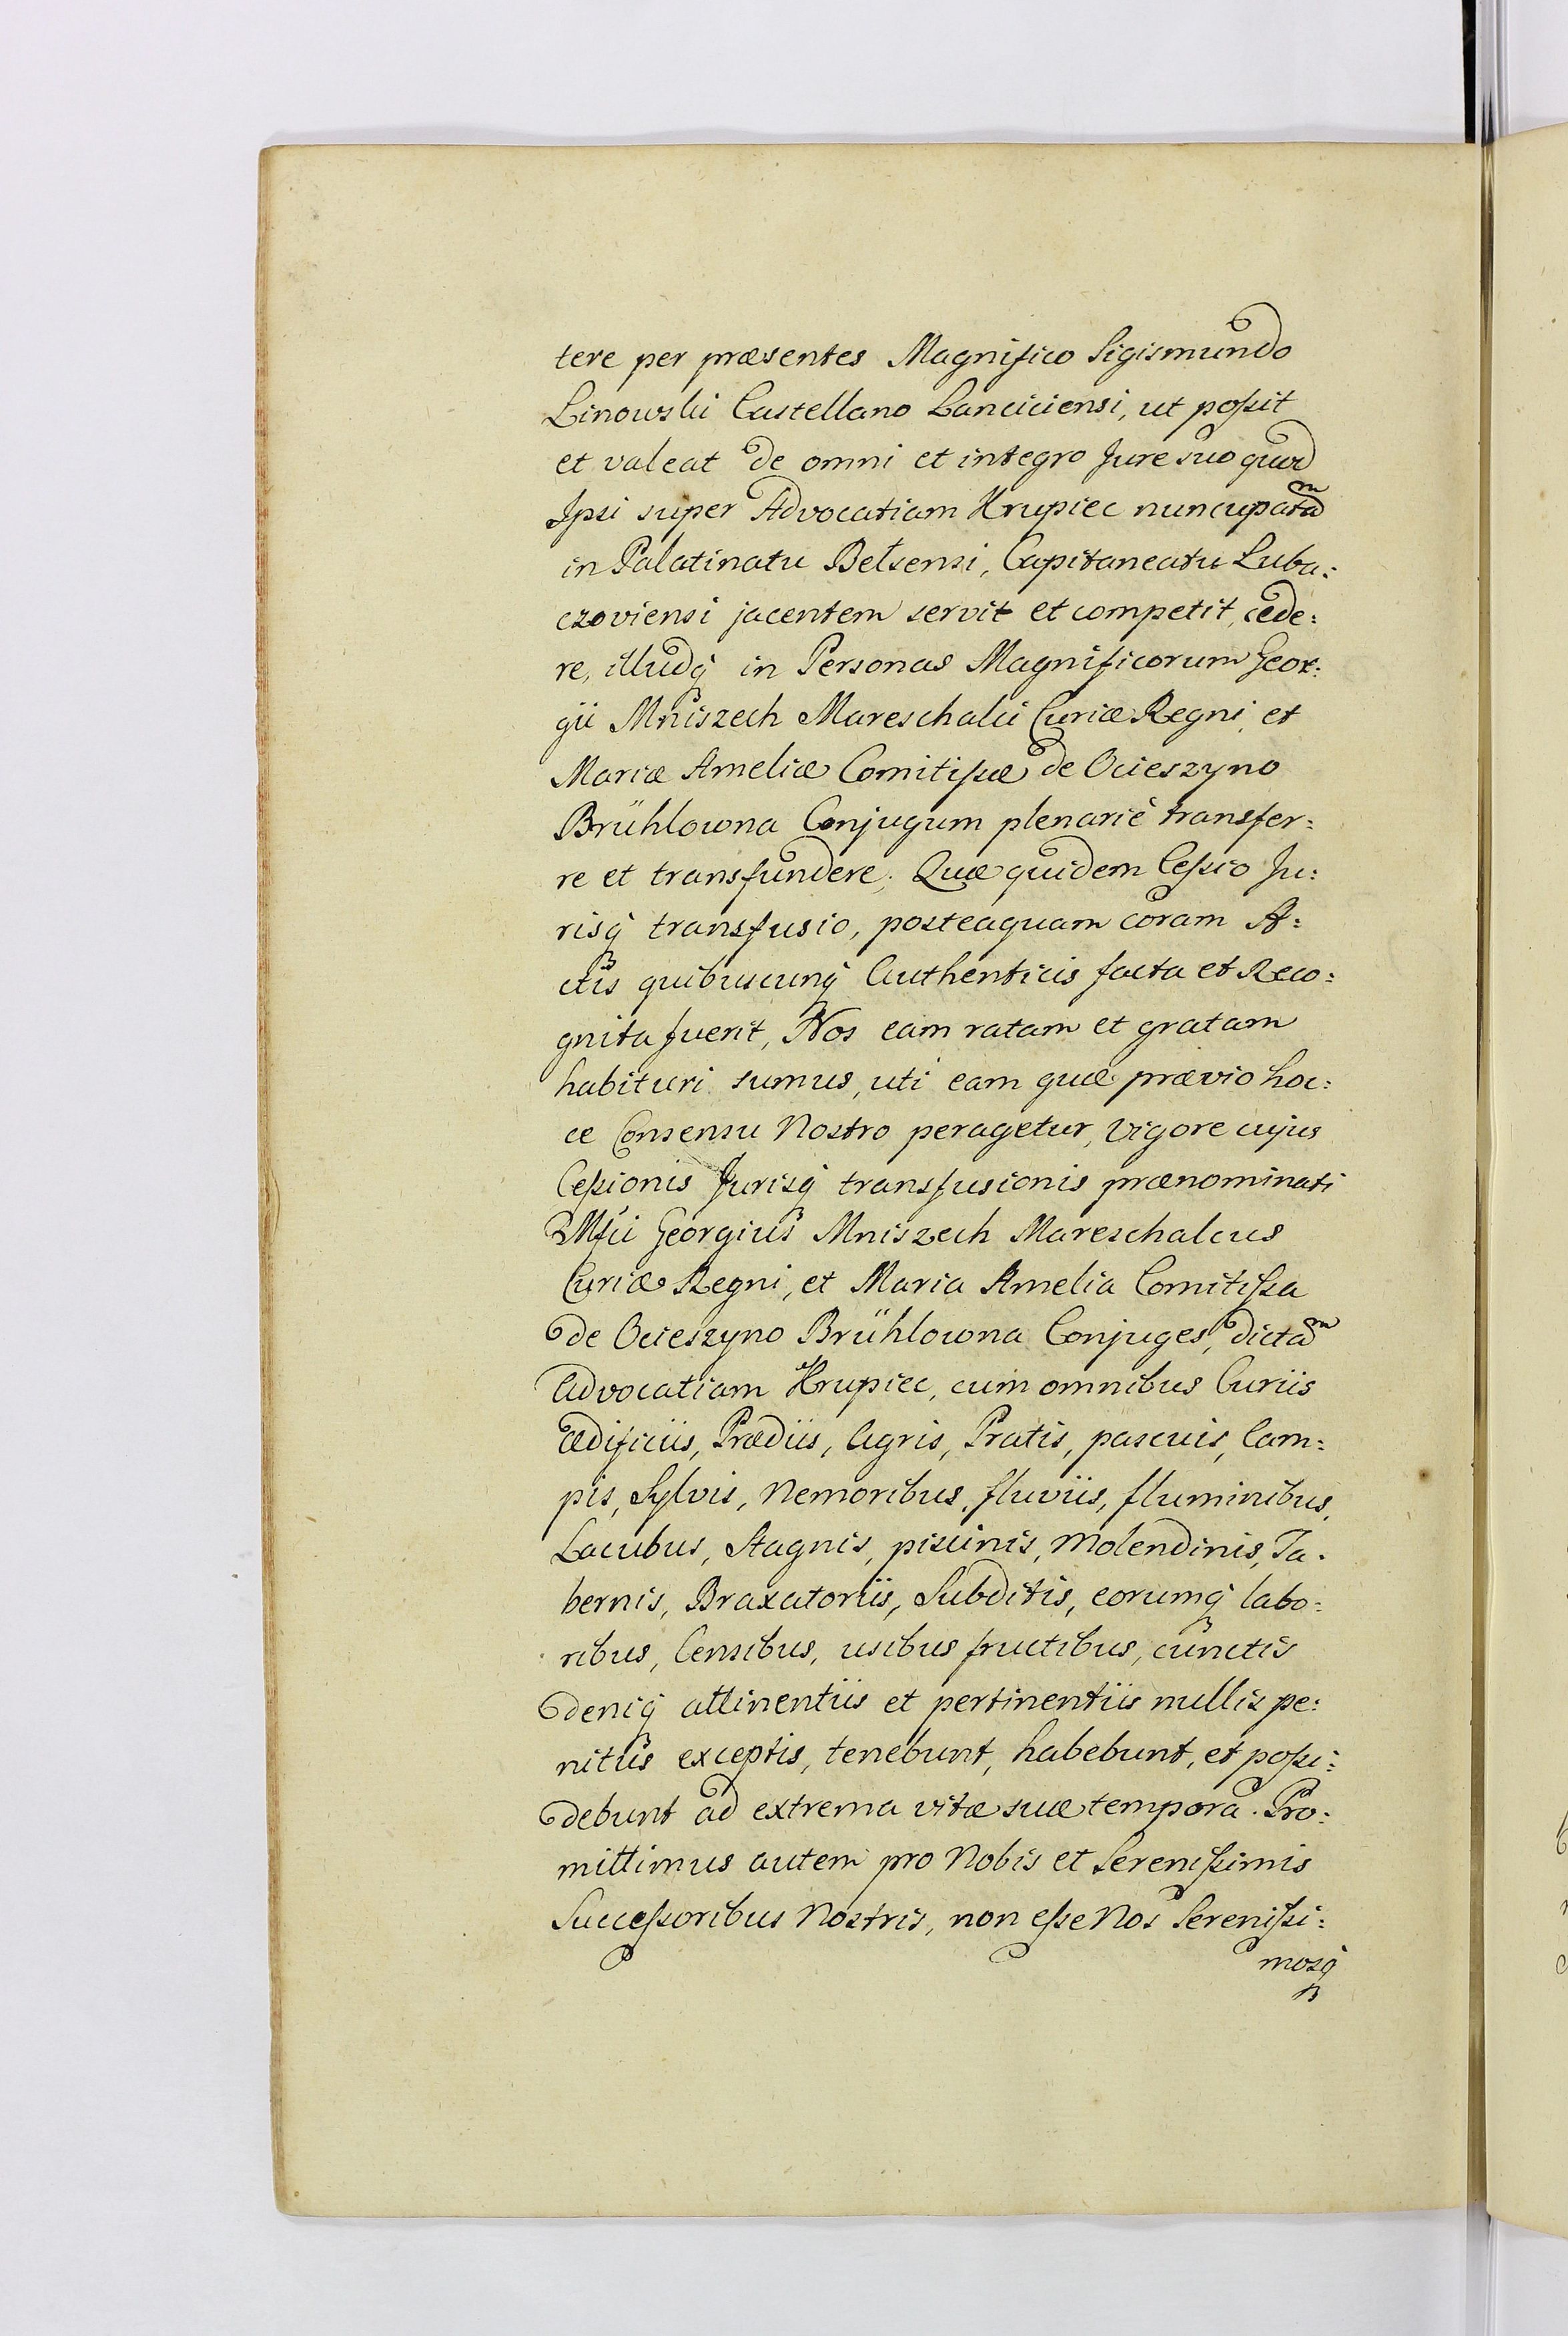 tere per præsentes Magnifico Sigismundo
Linowski Castellano Lanciciensi, ut poſsit
et valeat de omni et integro Jure suo quod
Ipsi super Advocatiam Krupiec nuncupatam
in Palatinatu Belsensi, Capitaneatu Luba:
czoviensi jacentem servit et competit, cede:
re, illudq́ in Personas Magnificorum Geor:
gii Mniszech Mareschalci Curiæ Regni et
Mariæ Ameliæ Comitiſsæ de Ocieszyno
Brühlowna Conjugum plenariè transfer:
re et transfundere. Quæ quidem Ceſsio Ju:
risq́ transfusio, posteaquam coram A:
ctis quibuscunq́ Authenticis facta et Reco:
gnita fuerit, Nos eam ratam et gratam
habituri sumus, uti eam quæ prævio hoc:
ce Consensu Nostro peragetur, Vigore cujus
Ceſsionis Jurisq́ transfusionis prænominati
Mfci Georgius Mniszech Mareschalcus
Curiæ Regni, et Maria Amelia Comitiſsa
de Ocieszyno Brühlowna Conjuges, dictam
Advocatiam Krupiec, cum omnibus Curiis
Ædificiis, Prædiis, Agris, Pratis, pascuis, Cam:
pis, Sylvis, Nemoribus, fluviis, fluminibus,
Lacubus, Stagnis, piscinis, Molendinis, Ta:
bernis, Braxatoriis, Subditis, eorumq́ labo:
ribus, Censibus, usibus fructibus, cunctis
deniq́ attinentiis et pertinentiis nullis pe:
nitus exceptis, tenebunt, habebunt, et poſsi:
debunt ad extrema vitæ suæ tempora. Pro:
mittimus autem pro Nobis et Sereniſsimis
Succeſsoribus Nostris, non eſse Nos Sereniſsi:
mosq́